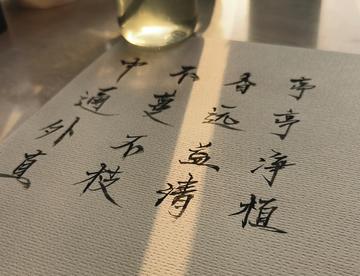 中通外直
不蔓不枝
香远益清
亭亭净植